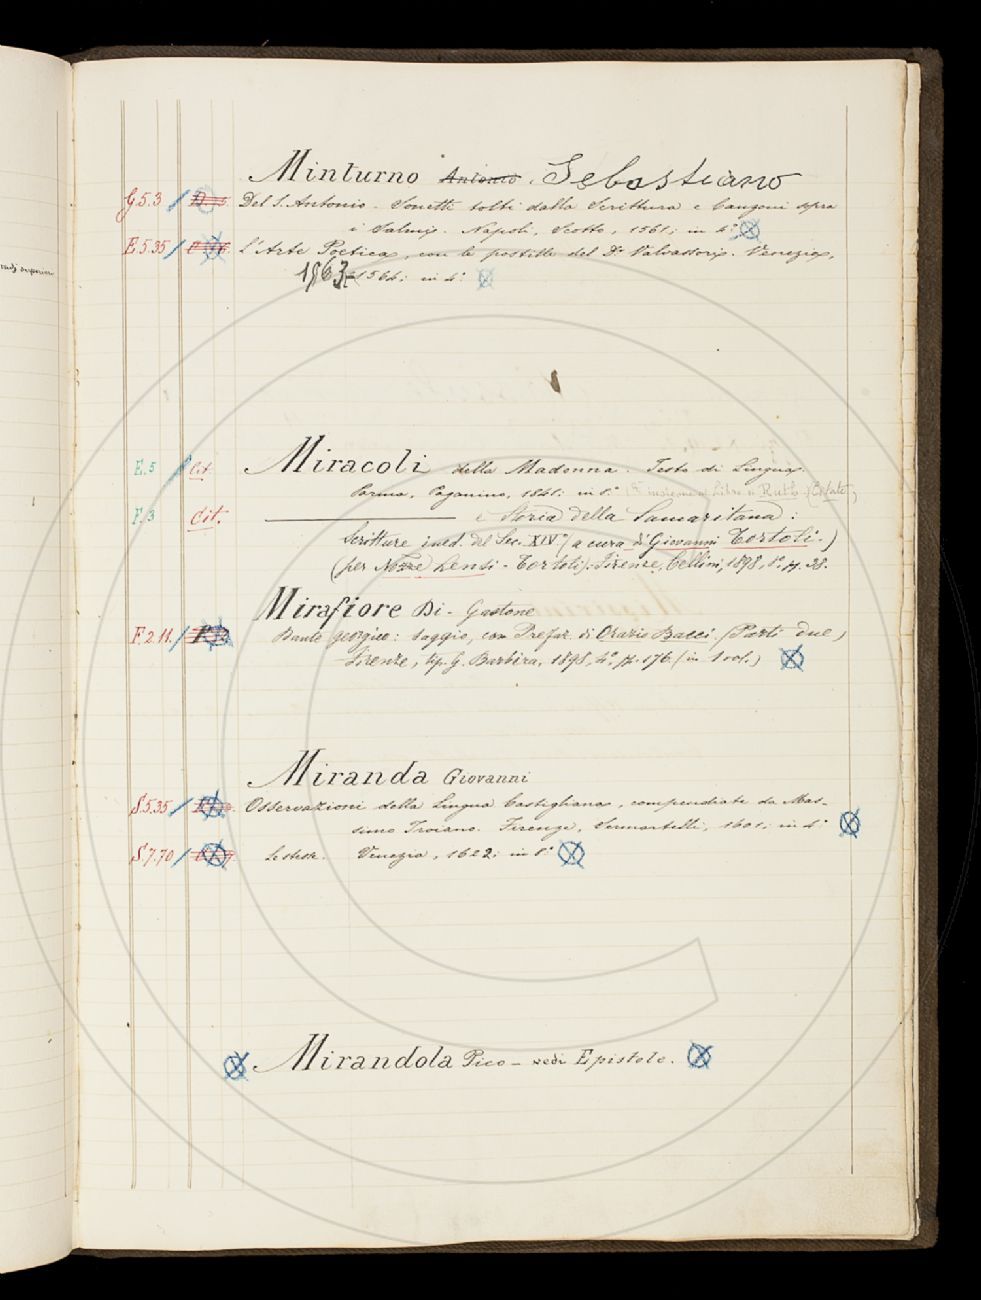 Minturno Antonio. Sebastiano
G.5.3 / Del S. Antonio. Sonetti tolti dalla Scrittura e Canzoni sopra
i Salmi. Napoli, Scotto, 1561; in 4°
E.5.35 / L'Arte Poetica, con le postille del Dr. Valvassori. Venezia,
1563 - 1564; in 4°
E.5 / Cit. Miracoli della Madonna. Testo di Lingua.
Parma, Paganino, 1841; in 8° (è insieme al Libro di Ruth) (Citato)
F.3 Cit. e Storia della Samaritana:
Scritture ined. del Sec. XIV° (a cura di Giovanni Tortoli.)
(per Nozze Lensi - Tortoli). Firenze, Cellini, 1898, 8°. p. 38.
Mirafiore Di - Gastone
F.2.11. / Dante georgico: saggio, con Prefaz. di Orazio Bacci. (Parti due)
Firenze, tip. G. Barbèra, 1898, 4°. p. 176. (in 1 vol.)
Miranda Giovanni
S.5.35 / Osservazioni della Lingua Castigliana, compendiate da Mas-
simo Troiano. Firenze, Sermartelli, 1601; in 4°
S.7.70 / Le stesse. Venezia, 1622; in 8°
Mirandola Pico - vedi Epistole.